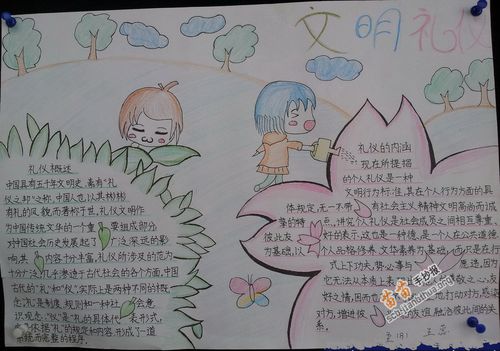 文明礼仪
礼仪概述
中国具有五千年文明史,素有"礼
仪之邦"之称,中国人也以其彬彬
有礼的风貌而著称于世。礼仪文明作
为中国传统文化的一个重要组成部分
对中国社会历史发展起了广泛深远的影
响,其内容十分丰富。礼仪所涉及的范为
十分广泛,几乎渗透于古代社会的各个方面,中国
古代的"礼"和"仪",实际上是两种不同的概
念。"礼"是制度、规则和一种社会意
识观念。"仪"是"礼"的具体代表形式,
依据"礼"的规定和内容,形成了一道
系统而完整的程序。
礼仪的内涵
现在所提倡
的个人礼仪是一种
文明行为标准,其在个人行为方面的具
体规定,无一不带有社会主义精神文明高尚而诚
挚的特点,讲究个人礼仪是社会成员之间相互尊重、
彼此友好的表示,这也是一种德,是一个人在公共道德
为基础,以个人品格修养、文华素养为基础,而只是在形
式上下功夫,势必事与愿违,因
它无法从本质上表
友好之情,因而也
对方,增进彼
系。